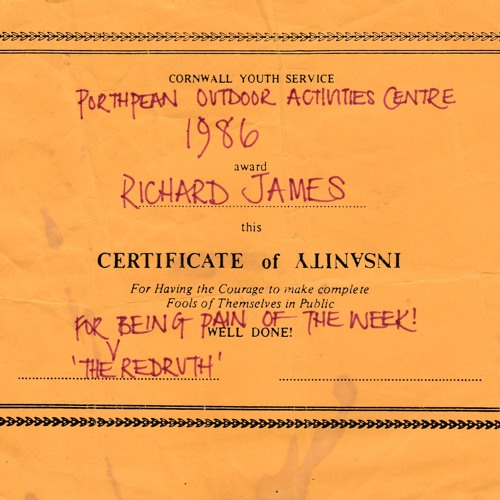 CORNWALL YOUTH SERVICE
PORTHPEAN OUTDOOR ACTIVITIES CENTRE
1986
award
RICHARD JAMES
this
CERTIFICATE of INSANITY
For Having the Courage to make complete
Fools of Themselves in Public
FOR BEING PAIN OF THE WEEK!
WELL DONE!
'THE REDRUTH'